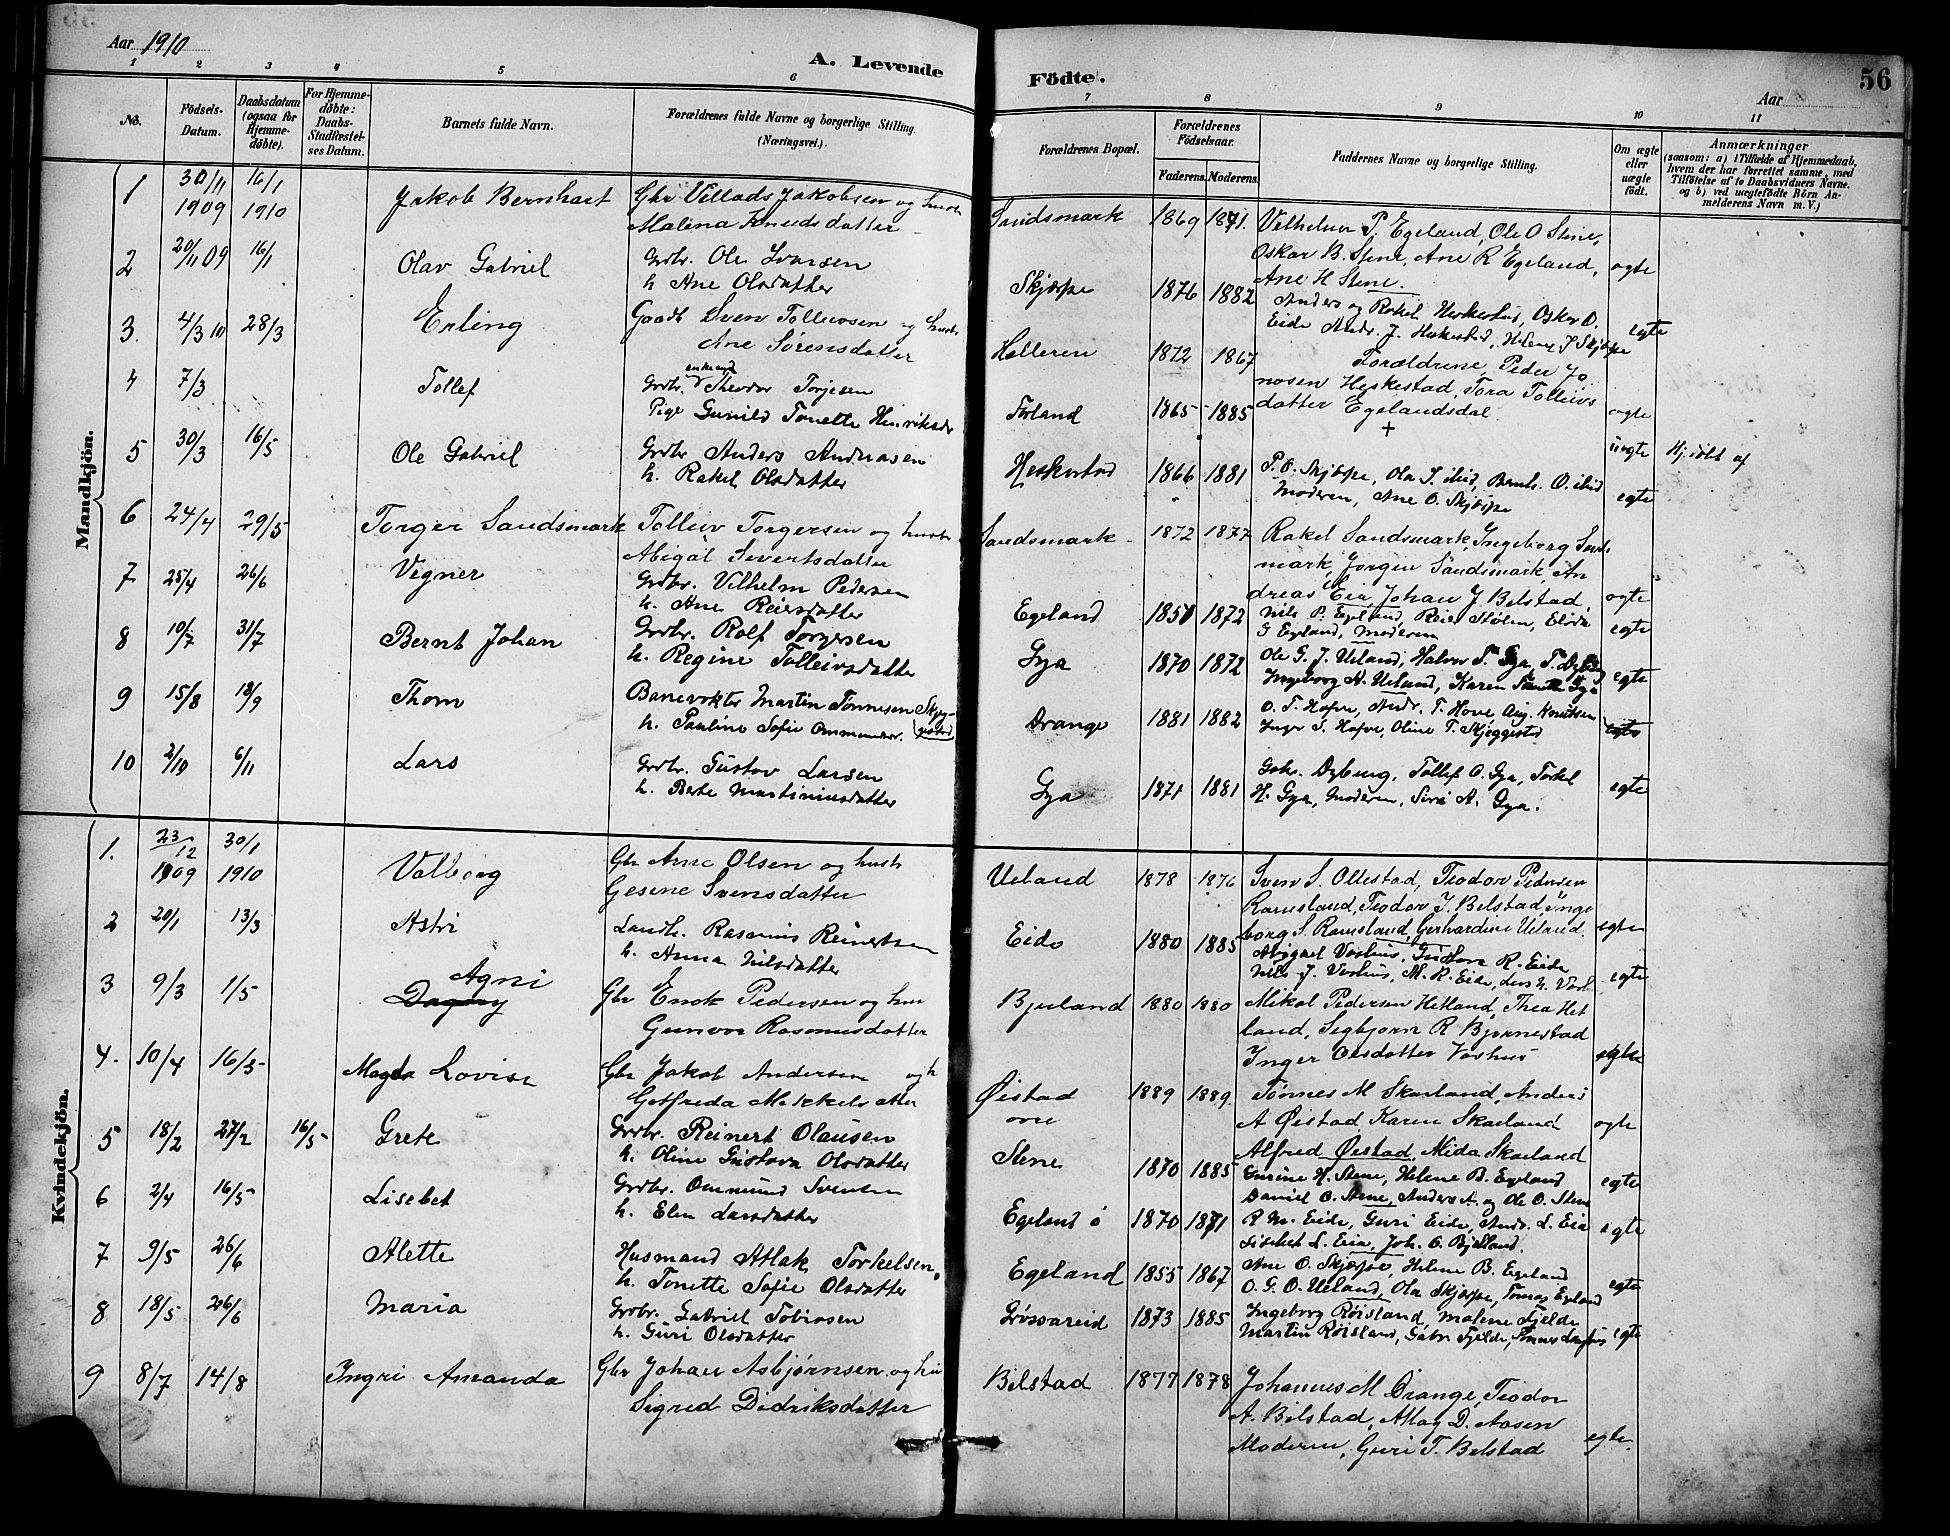 Aar 1910
A. Levende Födte.
Aar 1
56
1 2 3 4 5 6 7 8 9 10 11
No.
Födsels-Datum.
Daabsdatum (ogsaa for Hjemme-döbte).
For Hjemme-döbte: Daabs-Stadfæstel-ses Datum.
Barnets fulde Navn.
Forældrenes fulde Navne og borgerlige Stilling. (Næringsvei.)
Forældrenes Bopæl.
Forældrenes Födselsaar.
Faderens. Moderens.
Faddernes Navne og borgerlige Stilling.
Om ægte eller uægte födt.
Anmærkninger
(saasom: a) i Tilfælde af Hjemmedaab, hvem der har forrettet samme, med Tilföielse af to Daabsvidners Navne. og b) ved uægtefödte Börn An-melderens Navn m. V.)
Mandkjön.
1 30/11 1909 16/1 1910 Jakob Bernhart Gbr Villads Jakobsen og hustr Malena Knudsdatter Sandsmark 1869 1871. Vilhelm P. Egeland, Ole O Stene, Oskar B. Stene, Ane R Egeland, Ane H Stene. egte
2 20/11 09 16/1 Olav Gabriel Grdbr. Ole Ivarsen h Ane Olsdatter Skjæpe 1876 1882 Anders og Rakel Heskestad, Oskar O. Eide Andr. J. Heskestad, Helene J Skjæpe egte
3. 4/3 10 28/3 Erling Gaardb Sven Tollevsen og hustr Ane Sørensdatter Halleren 1872 1867 Forældrene, Peder Jonasen Heskestad, Tora Tolleivsdatter Egelandsdal egte
4 7/3 Tollef Grdbr. enkemd Theodor Torjesen Pige Gunild Tonette Henriksdr Förland 1865 1885 + uegte Hj.döbt af
5 30/3 16/5 Ole Gabriel Grdbr Anders Andreasen h. Rakel Olsdatter Heskestad 1866 1881 P. O. Skjæpe, Ola T. ibid, Bernh. O. ibid Moderen, Ane O. Skjæpe egte
6 24/4 29/5 Torger Sandsmark Tolleiv Torgersen og hustr Abigael Sivertsdatter Sandsmark 1872 1877 Rakel Sandsmark, Ingeborg Sandsmark, Jörgen Sandsmark, Andreas Eia, Johan J. Bilstad, egte
7 25/4 26/6 Vegner Grdbr. Vilhelm Pedersen h. Ane Reiersdatter Egeland 1851 1872 Nils P. Egeland, Reier Stölen, G Egeland, Moderen egte
8 10/7 31/7 Bernt Johan Grdbr. Rolf Torgersen h. Regine Tolleivsdatter Gya 1870 1872 Ole G. J. Ueland, Halvor T. Gya, Ingeborg A. Ueland, Karen Tonette Gya egte
9 15/8 18/9 Thom Banevokter Martin Tönnesen h. Pauline Sofie Ommundsdr. Drange 1881 1882 O. T. Hofve, Andr. T. Hove, Aug. Knutsen Inger S. Hofve, Oline T. Skjeggestad egte
10 2/10 6/11 Lars Grdbr. Gustav Larsen h. Berte Martiniusdatter Gya 1871 1881 Dybing, Tollef O. Gya, Torkel H. Gya, Moderen, Siri A. Gya. egte
Kvindekjön.
1. 23/12 1909 30/1 1910 Valborg Gbr Arne Olsen og hustr Gesine Svensdatter Ueland 1878 1876 Sven S. Ollestad, Teodor Pedersen Ramsland, Teodor J. Bilstad, Ingeborg S. Ramsland, Gerhardine Ueland. egte
2 20/1 13/3 Astri Landh. Rasmus Reinertsen h. Anna Nilsdatter Eide 1880 1885 Abigael Vashus, Gustava R. Eide Nils J. Vashus, M. R. Eide, egte
3 9/3 1/5 Agni Dagny Gbr Enok Pedersen og hus Gunvor Rasmusdatter Bjuland 1880 1880 Mikal Pedersen Hetland, Thea Hetland, Segbjørn R Bjørnestad Inger Olsdatter Vashus egte
4. 10/4 16/5 Magda Lovise Gbr Jakob Andersen og h Gotfreda Mikkelsdatter Øistad 1889 1889. Tønnes M Skarland, Anders A Øistad Karen Skarland Alfred Øistad, Mida Skarland egte
5 18/2 27/2 16/5 Grete Grdbr. Reinert Olausen h. Oline Gustava Olsdatter Stene 1870 1885 Gurine H. Stene, Helene B. Egeland Daniel O. Stene, Anders A. og Ole O. Stene egte
6 2/4 16/5 Lisebet Grdbr. Ommund Svensen h. Elen Larsdatter Egeland ö 1870 1871 R M. Eide, Guri Eide, Andr. L. Eia Lisebet L. Eia, Joh. O. Bjelland. egte
7 9/5 26/6 Alette Husmand Atlak Torkelsen, h. Tonette Sofie Olsdatter Egeland 1855 1867 Ane O. Skjæpe, Helene B. Egeland O. G. O. Ueland, Ola Skjæpe, Tönnes Egeland egte
8 18/5 26/6 Maria Grdbr. Gabriel Tobiasen h. Guri Olsdatter Grössareid 1873 1885 Ingeborg Röisland, Malene Fjelde Martin Röisland, Gabr Fjelde, egte
9 8/7 14/8 Ingri Amanda Gbr Johan Asbjørnsen og hu Sigrid Didriksdatter Bilstad 1877 1878 Johannes M Drange, Teodor A. Bilstad, Atlag D. Aasen Moderen, Guri T. Bilstad egte.